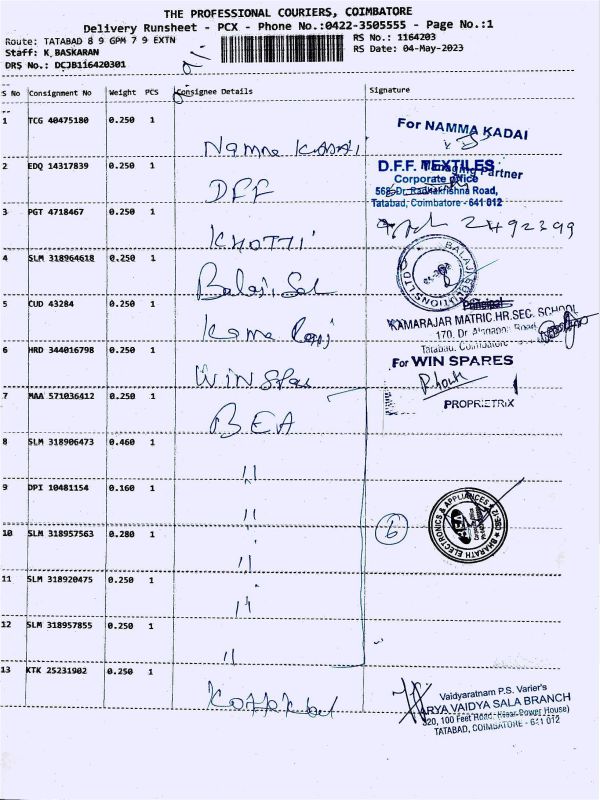 THE PROFESSIONAL COURIERS, COIMBATORE
Delivery Runsheet - PCX - Phone No.:0422-3505555 - Page No.:1
Route: TATABAD 8 9 GPM 7 9 EXTN
RS No.: 1164203
Staff: K BASKARAN
RS Date: 04-May-2023
DRS No.: DCJB116420301
S No Consignment No Weight PCS Consignee Details Signature
1 TCG 40475180 0.250 1
Namma Kadai
For NAMMA KADAI
2 EDQ 14317839 0.250 1
DFF
D.F.F. TEXTILES
Managing Partner
Corporate Office
568, Dr. Radhakrishna Road,
Tatabad, Coimbatore - 641 012
3 PGT 4718467 0.250 1
KHOTHI
2492399
4 SLM 318964618 0.250 1
Balaji
5 CUD 43284 0.250 1
Principal
KAMARAJAR MATRIC.HR.SEC. SCHOOL
170, Dr. Alagappa Road
Tatabad, Coimbatore
6 HRD 344016798 0.250 1
WIN Spar
For WIN SPARES
PROPRIETRIX
7 MAA 571036412 0.250 1
BEA
8 SLM 318906473 0.460 1
"
9 DPI 10481154 0.160 1
"
6
BHARATH ELECTRONICS & APPLIANCES ★ CBE-12 ★
BEA
10 SLM 318957563 0.280 1
"
11 SLM 318920475 0.250 1
"
12 SLM 318957855 0.250 1
"
13 KTK 25231902 0.250 1
Kottakkal
Vaidyaratnam P.S. Varier's
ARYA VAIDYA SALA BRANCH
320, 100 Feet Road, (Near Power House)
TATABAD, COIMBATORE - 641 012